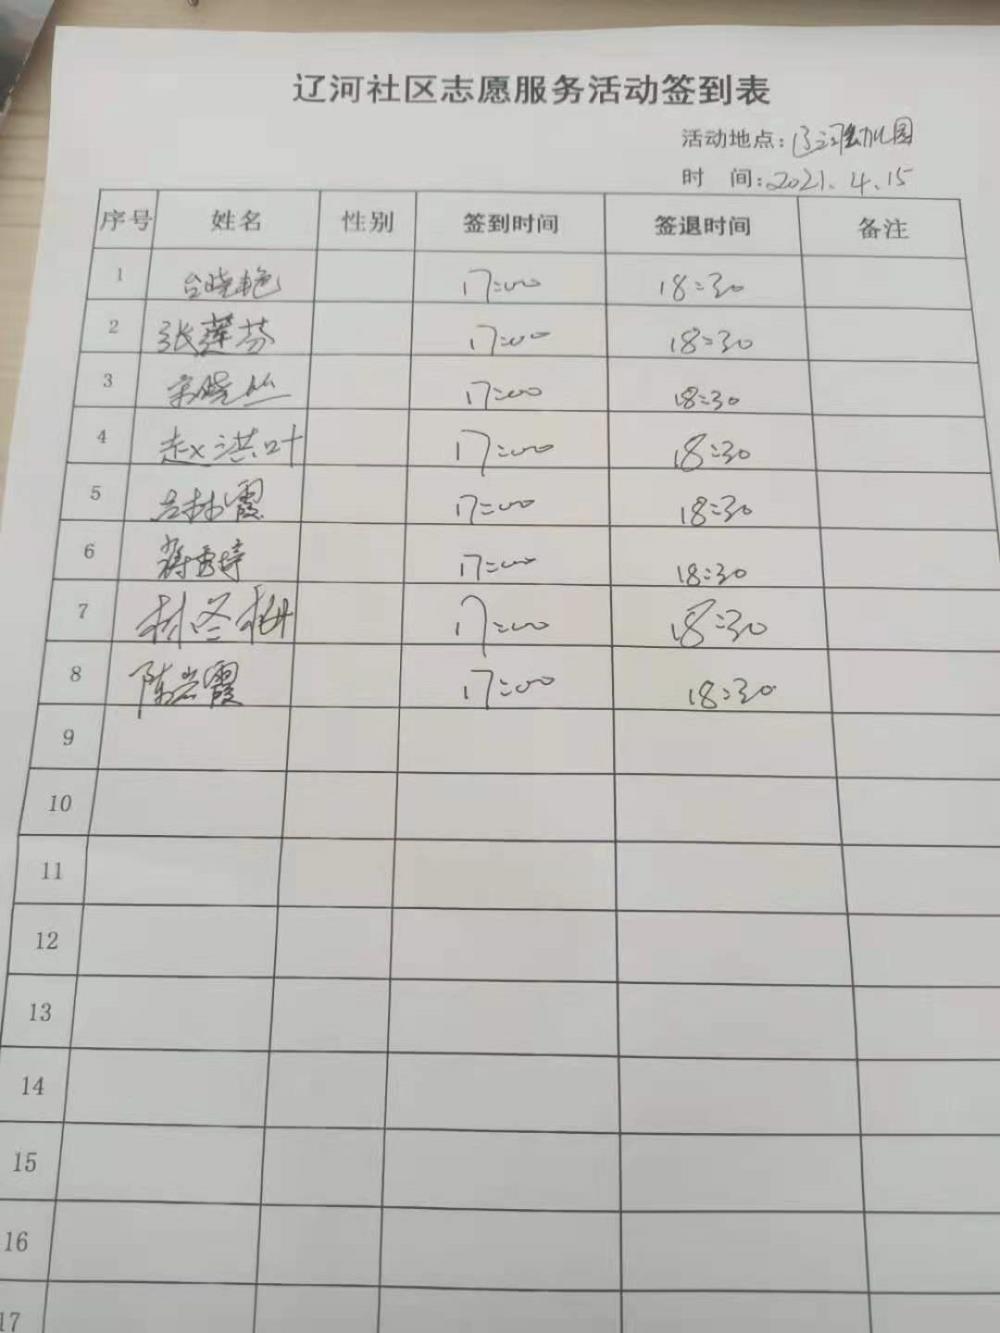 辽河社区志愿服务活动签到表
活动地点:辽河幼儿园
时 间:2021.4.15
序号 姓名 性别 签到时间 签退时间 备注
1 台晓艳 17:00 18:30
2 张莲芬 17:00 18:30
3 宋晓丝 17:00 18:30
4 赵洪叶 17:00 18:30
5 吕林霞 17:00 18:30
6 蒋秀婷 17:00 18:30
7 林冬梅 17:00 18:30
8 陈岩霞 17:00 18:30
9
10
11
12
13
14
15
16
17